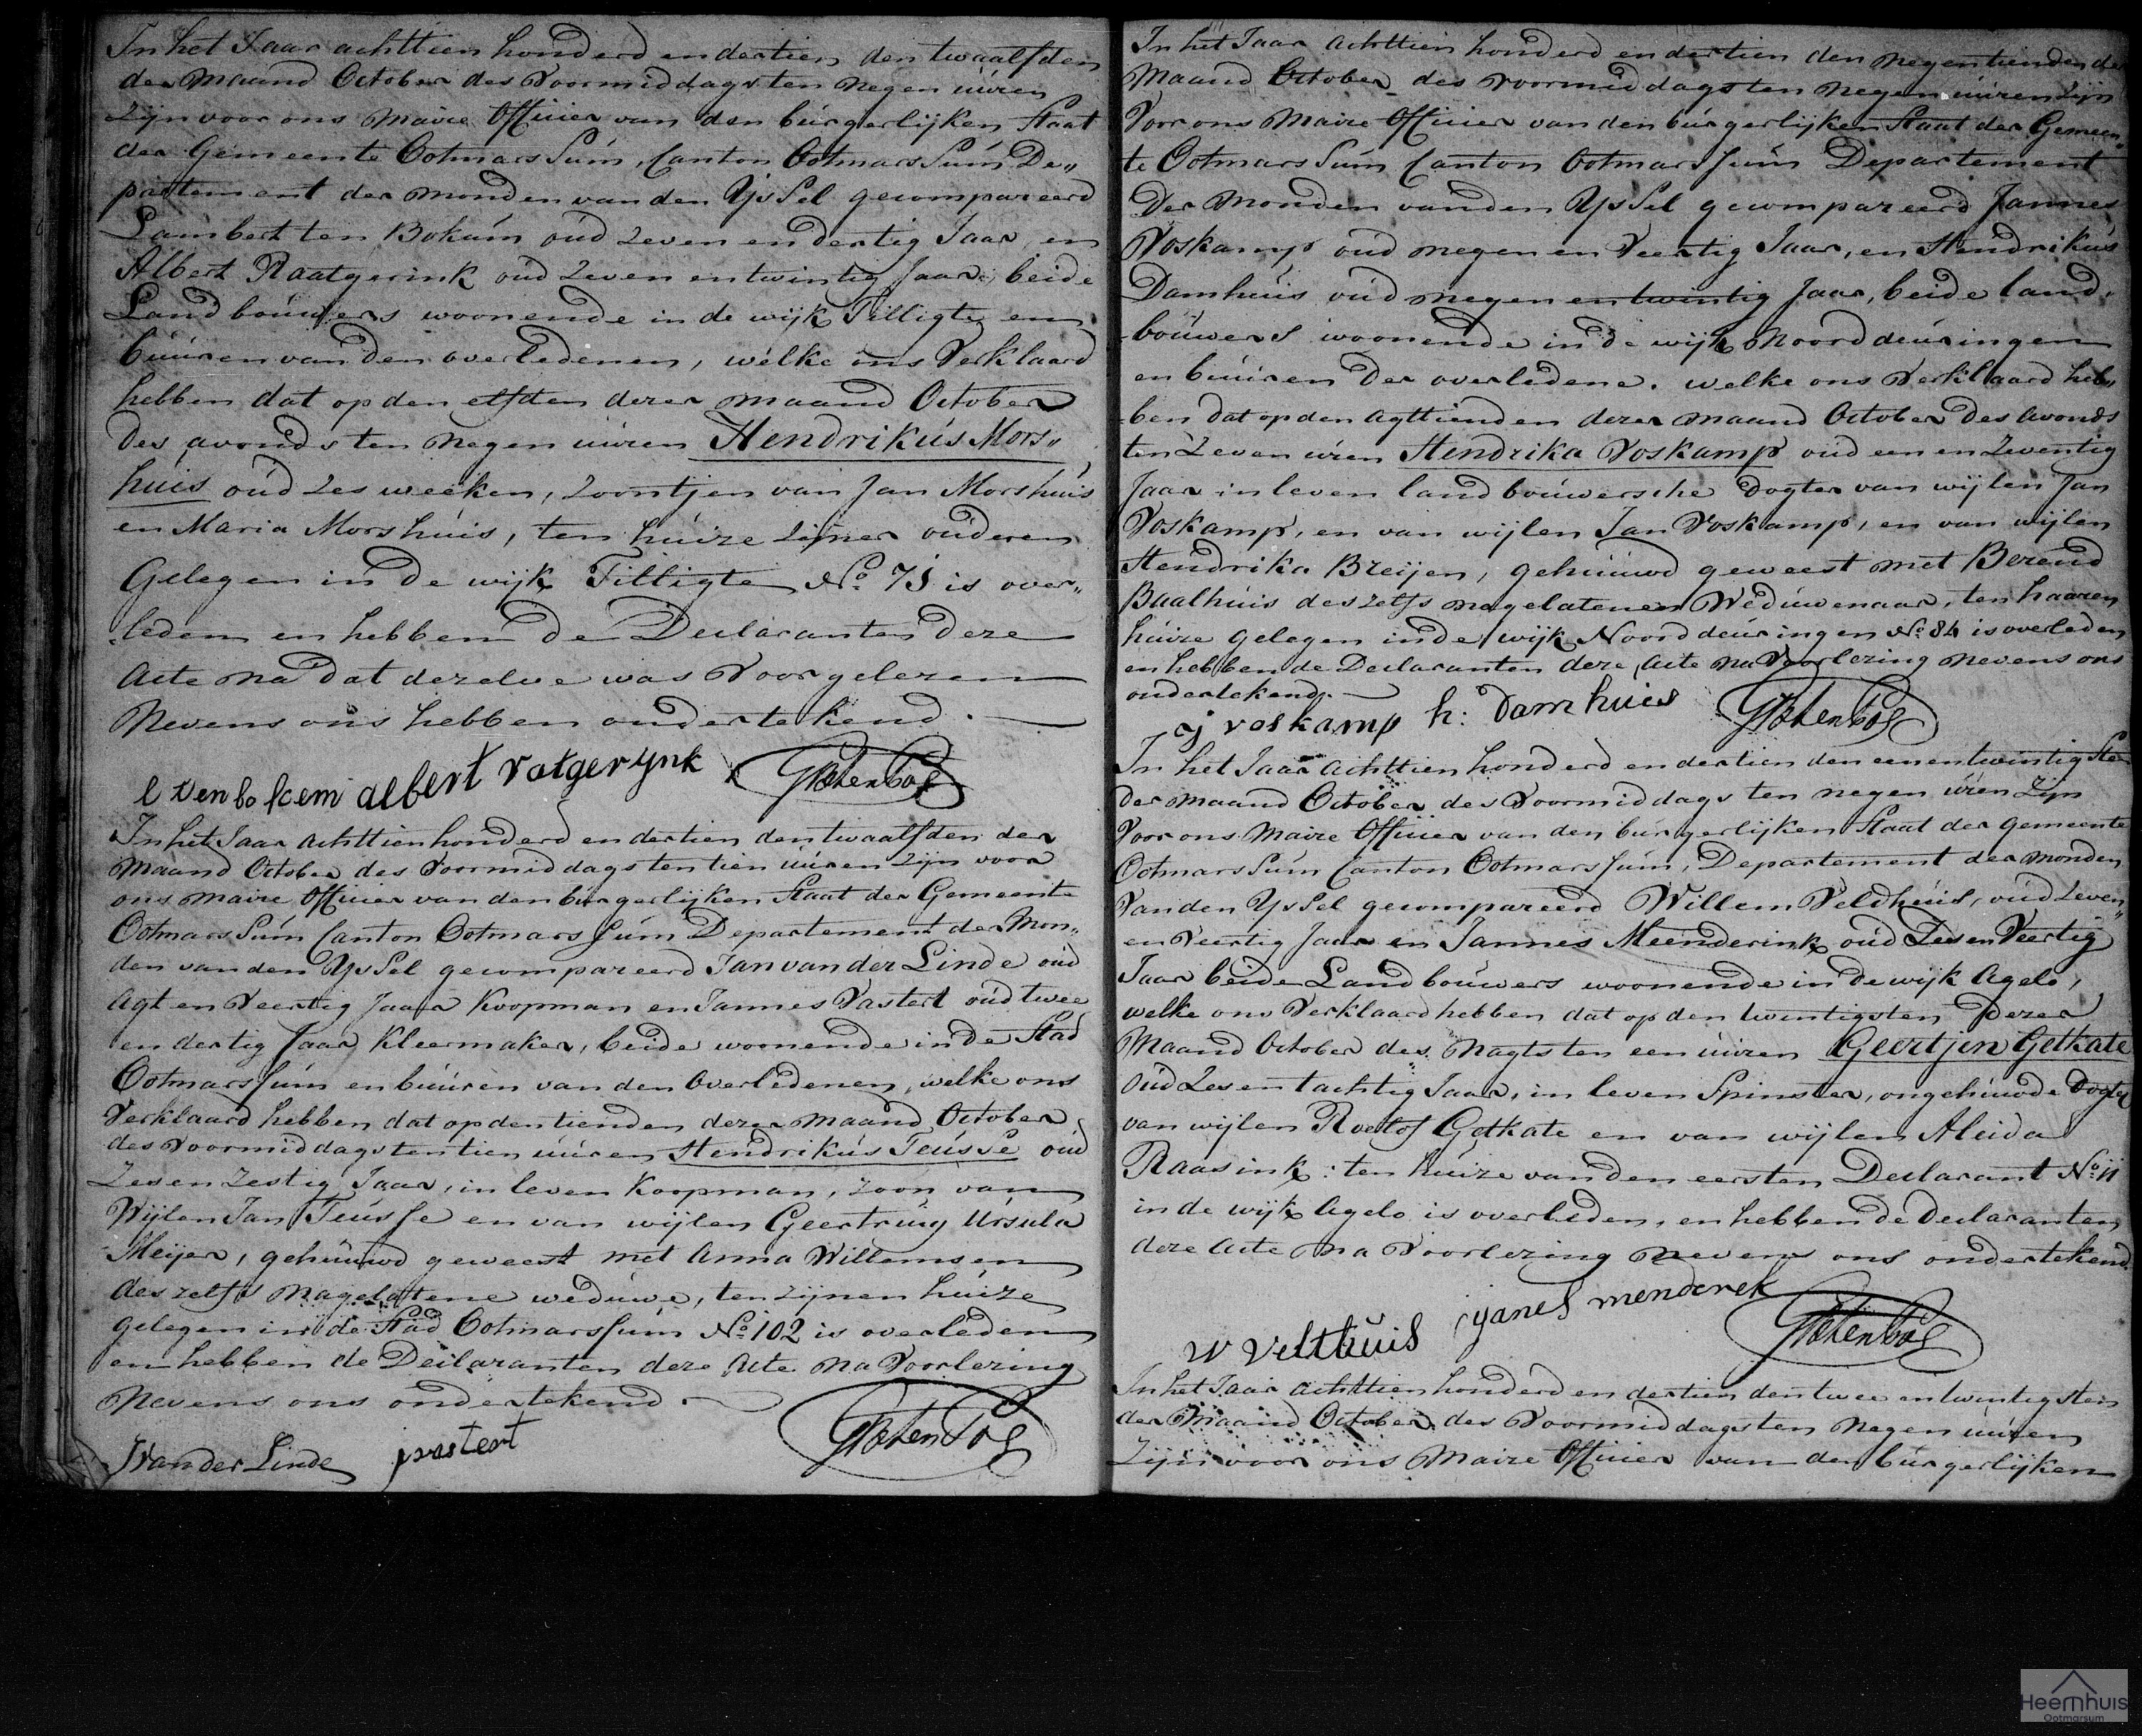 In het Jaar achttien honderd en dertien den twaalfden
der maand October des Voormiddags ten negen úúren
zijn voor ons maire Officier van den búrgerlijken Staat
der Gemeente Ootmarssúm, Canton Ootmarssúm De„
partement der monden van den Yssel gecompareerd
Lambert ten Bokúm oúd zeven en dertig Jaar, en
Albert Raatgerink oúd zeven en twintig Jaar, beide
Landboúwers woonende in de wijk Tilligte en
búúren van den overledenen, welke ons Verklaard
hebben dat op den elfden dezer maand October
des avonds ten negen úúren Hendrikús Mors„
húis oúd zes weeken, zoontjen van Jan Morshúis
en Maria Morshúis, ten húize zijner oúderen
Gelegen in de wijk Tilligte No. 75 is over„
leden en hebben de Declaranten deze
Acte na dat dezelve was Voorgelezen
Nevens ons hebben ondertekend.
l ten bokem albert ratgerynk
In het Jaar achttienhonderd en dertien den twaalfden der
maand October des Voormiddags ten tien úúren zijn voor
ons maire Officier van den búrgerlijken Staat der Gemeente
Ootmarssúm Canton Ootmarssúm Departement der Mon„
den van den Yssel gecompareerd Jan van der Linde oúd
Agt en Veertig Jaar Koopman en Jannes Vastert oúd twee
en dertig Jaar Kleermaker, beide woonende in de Stad
Ootmarssúm en búúren van den Overledenen, welke ons
Verklaard hebben dat op den tienden dezer maand October
des Voormiddags ten tien úúren Hendrikús Teússe oúd
Zes en Zestig Jaar, in leven Koopman, zoon van
Wijlen Jan Teússe en van wijlen Geertruig Ursula
Meijer, gehúúwd geweest met Anna Willemsen
deszelfs nagelatene wedúwe, ten zijnen húize
gelegen in de Stad Ootmarssúm No. 102 is overleden
en hebben de Declaranten deze Acte na Voorlezing
Nevens ons ondertekend.
J Van der Linde j vastert
In het Jaar Achttien honderd en dertien den negentienden der
Maand October des voormiddags ten negen úúren zijn
Voor ons Maire Officier van den búrgerlijken Staat der Gemeen„
te Ootmarssúm Canton Ootmarssúm Departement
Der Monden van den Yssel gecompareerd Jannes
Voskamp oúd negen en Veertig Jaar, en Hendrikús
Damhúis oúd negen en twintig Jaar, beide land„
boúwers woonende in de wijk Noorddeúringen
en búúren der overledene. welke ons Verklaard heb„
ben dat op den Agttienden dezer maand October des Avonds
ten Zeven úren Hendrika Voskamp oúd een en Zeventig
Jaar in leven landboúwersche Dogter van wijlen Jan
Voskamp, en van wijlen Jan Voskamp, en van wijlen
Hendrika Breijen, gehúúwd geweest met Berend
Baalhúis deszelfs nagelatenen Wedúwenaar, ten haaren
húize gelegen in de wijk Noorddeúringen No. 84 is overleden
en hebben de Declaranten deze Acte na Voorlezing nevens ons
ondertekend.
j voskamp h: Damhuies
In het Jaar Achttien honderd en dertien den een en twintigsten
der maand October des Voormiddags ten negen úren zijn
Voor ons Maire Officier van den búrgerlijken Staat der Gemeente
Ootmarssúm Canton Ootmarssúm, Departement der monden
Van den Yssel gecompareerd Willem Veldhúis, oúd Zeven„
en Veertig Jaar en Jannes Meenderink oúd Zes en Veertig
Jaar beide Landboúwers woonende in de wijk Agelo,
welke ons Verklaard hebben dat op den twintigsten Dezer
Maand October des Nagts ten een úúren Geertjen Getkate
Oúd Zes en tachtig Jaar, in leven Spinster, ongehúwde Dogter
van wijlen Roelof Getkate en van wijlen Aleida
Raasink: ten húize van den eersten Declarant No. 11
in de wijk Agelo is overleden, en hebben de Declaranten
deze Acte na Voorlezing nevens ons ondertekend.
W Velthuis janes menderek
In het Jaar Achttien honderd en dertien den twee en twintigsten
der Maand October des Voormiddags ten Negen úúren
Zijn voor ons Maire Officier van den búrgerlijken
Heemhuis
Ootmarsum